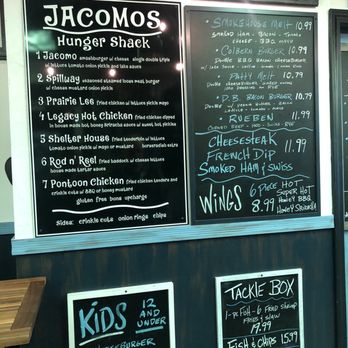 JACOMOS
Hunger Shack
1 Jacomo smashburger w/ cheese single double triple
w/ lettuce tomato onion pickle and jake sauce
2 Spillway seasoned steamed loose meat burger
w/ cheese mustard onion pickle
3 Prairie Lee fried chicken w/ lettuce pickle mayo
4 Legacy Hot Chicken fried chicken dipped
in house made hot honey sriracha sauce w/ sweet hot pickles
5 Shelter House fried tenderloin w/ lettuce
tomato onion pickle w/ mayo or mustard horseradish extra
6 Rod n' Reel fried haddock w/ cheese lettuce
house made tartar sauce
7 Pontoon Chicken fried chicken tenders and
crinkle cuts w/ BBQ or honey mustard
gluten free buns upcharge
Sides: crinkle cuts onion rings chips
• Smokehouse Melt 10.99
Smoked Ham - Bacon - Tomato
Cheese - BBQ Mayo
• Colbern Burger 10.99
Double w/ BBQ Bacon Cheeseburger
w/ jake sauce
• Patty Melt 10.50
Double
• D.B. Bacon Burger 10.99
Double
• Rueben 11.99
Corned Beef - Swiss - Rye
Cheesesteak
French Dip 11.99
Smoked Ham & Swiss
Wings 6 Piece Hot
8.99 Super Hot
Honey BBQ
Honey Sriracha
KIDS 12
AND
UNDER
CHEESEBURGER
TACKLE BOX
1-pc Fish - 6 Fried Shrimp
Fries & Slaw
19.99
Fish & Chips 15.99